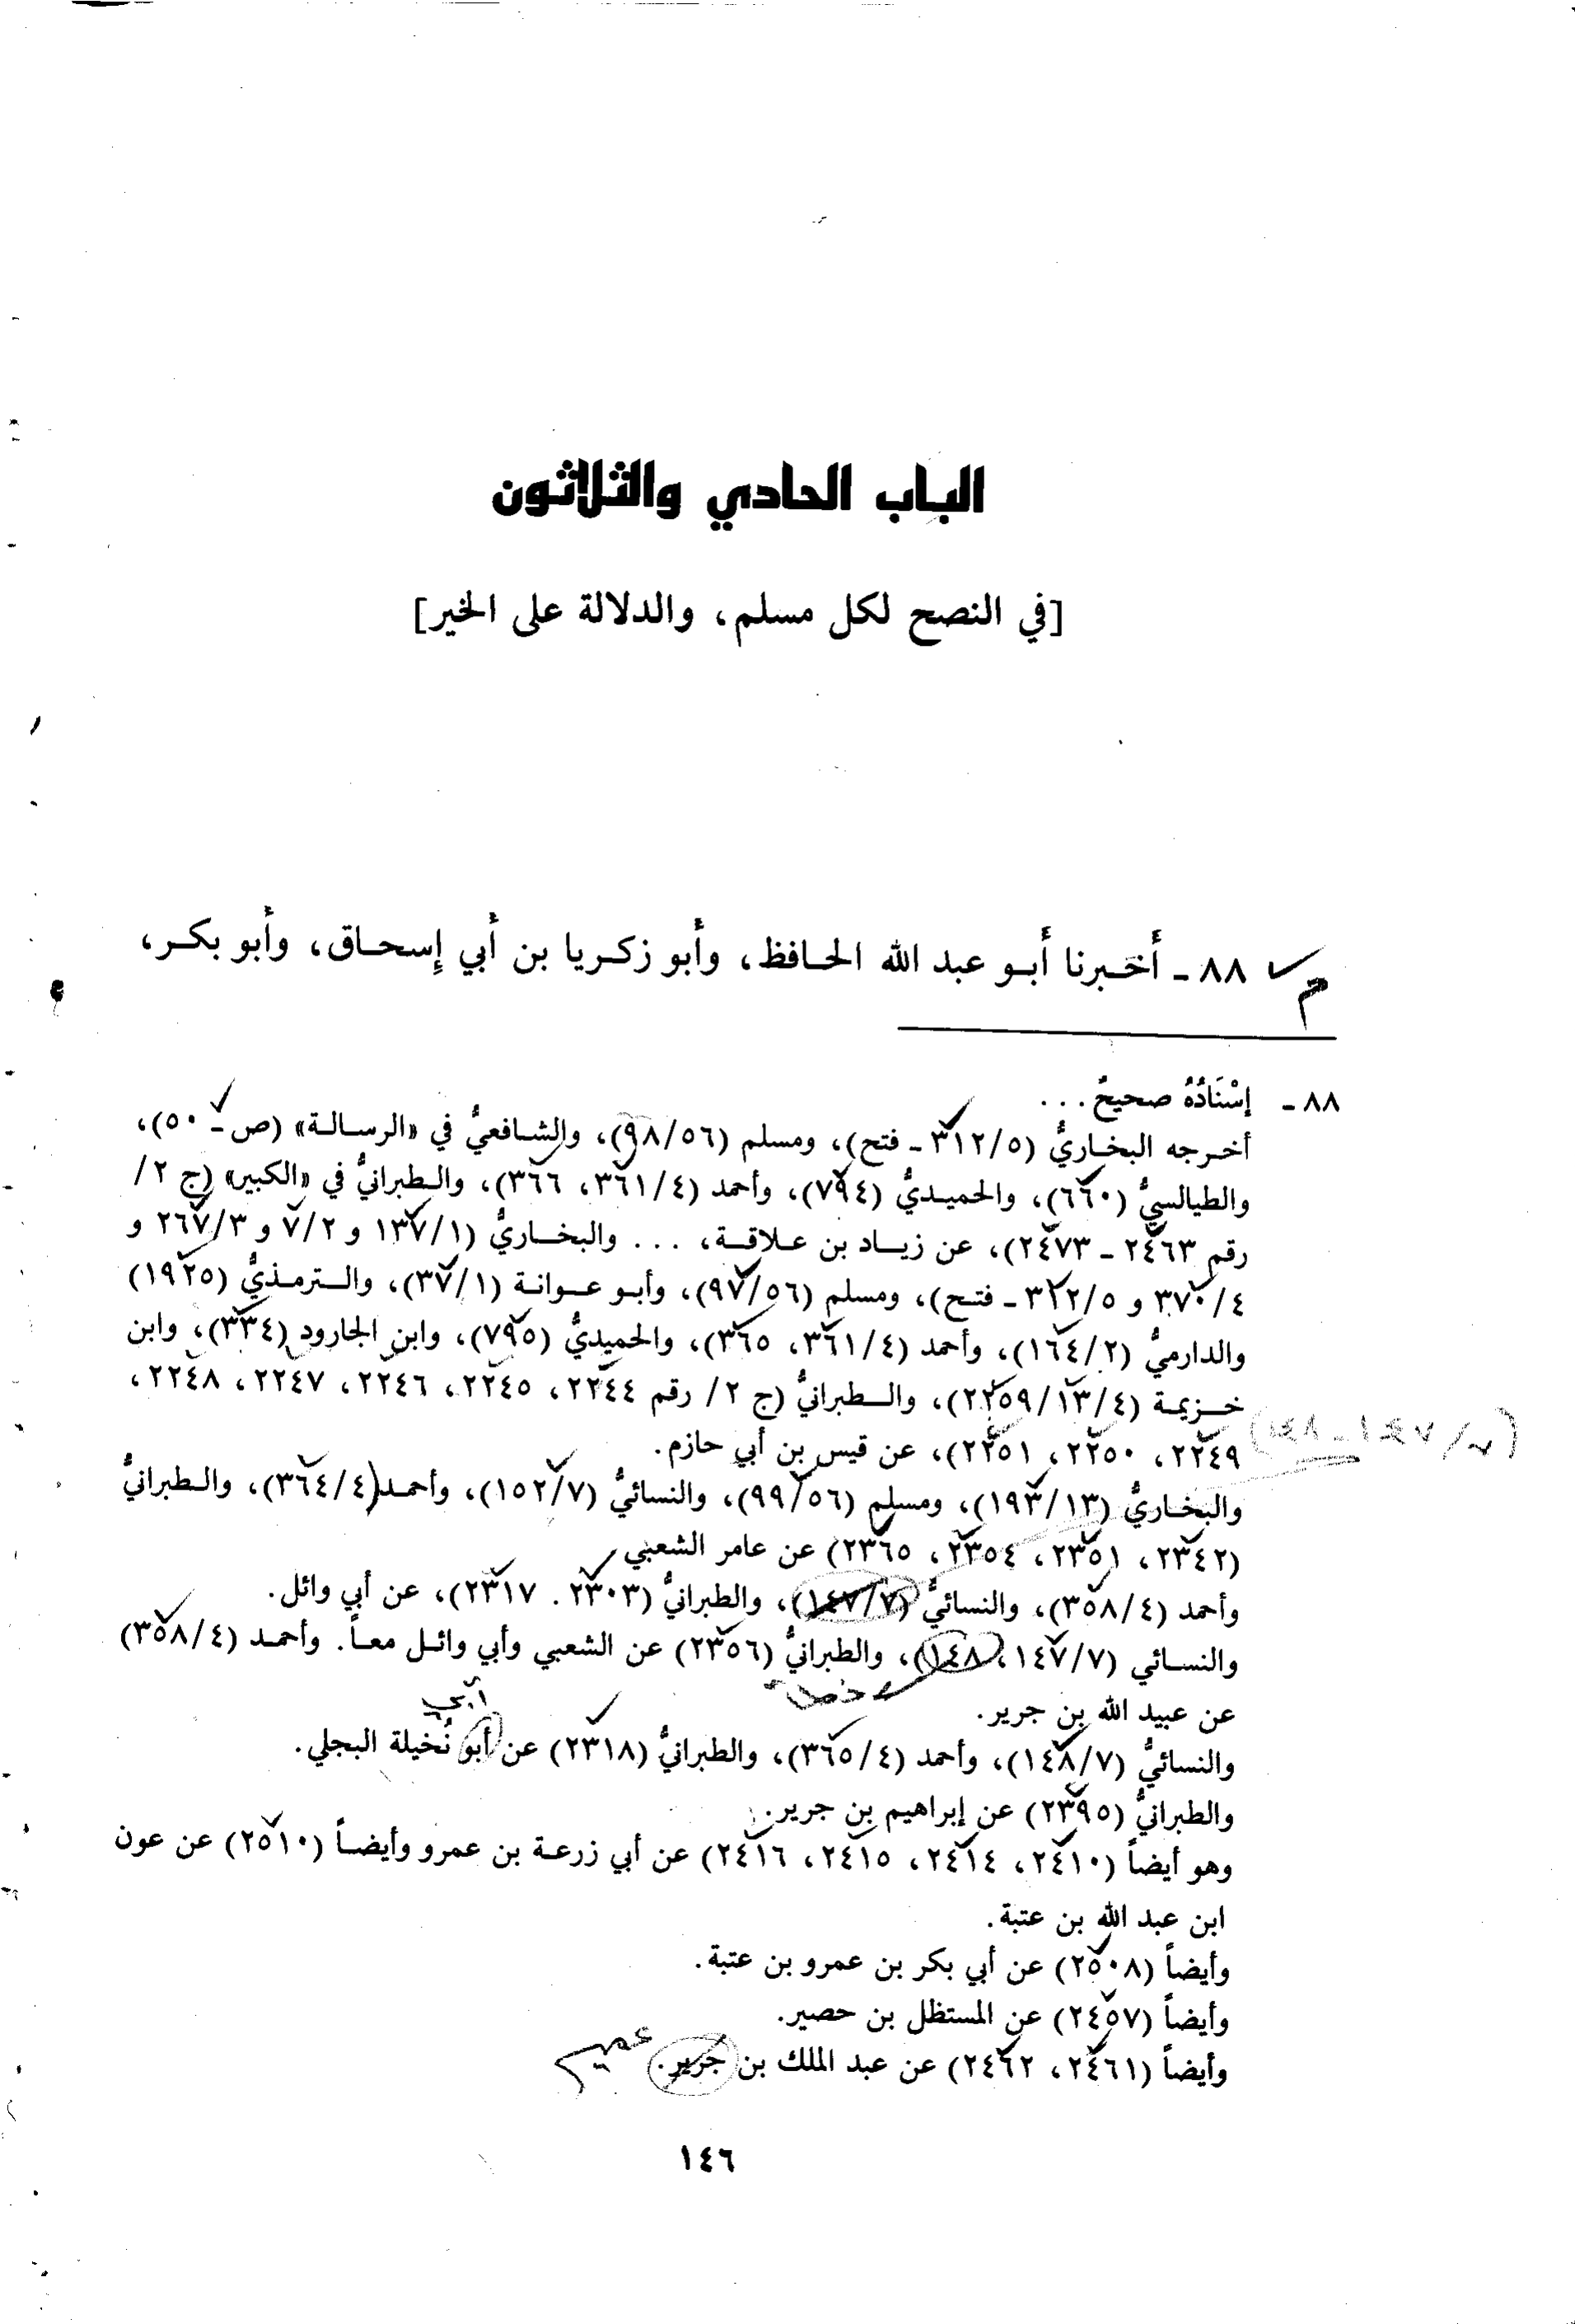 الباب الحادي والثلاثون
[في النصح لكل مسلم، والدلالة على الخير]
م ٨٨ - أخبرنا أبو عبد الله الحافظ، وأبو زكريا بن أبي إسحاق، وأبو بكر،
٨٨ - إسْنَادُهُ صحيحٌ...
أخرجه البخاريُّ (٣١٢/٥ - فتح)، ومسلم (٩٨/٥٦)، والشافعيُّ في «الرسالة» (ص - ٥٠)،
والطيالسيُّ (٦٦٠)، والحميديُّ (٧٩٤)، وأحمد (٣٦١/٤، ٣٦٦)، والطبرانيُّ في «الكبير» (ج ٢/
رقم ٢٤٦٣ - ٢٤٧٣)، عن زياد بن علاقة، ... والبخاريُّ (١٣٧/١ و ٧/٢ و ٢٦٧/٣ و
٣٧٠/٤ و ٣٢٢/٥ - فتح)، ومسلم (٩٧/٥٦)، وأبو عوانة (٣٧/١)، والترمذيُّ (١٩٢٥)
والدارميُّ (١٦٤/٢)، وأحمد (٣٦١/٤، ٣٦٥)، والحميديُّ (٧٩٥)، وابن الجارود (٣٣٤)، وابن
خزيمة (٢٢٥٩/١٣/٤)، والطبرانيُّ (ج ٢/ رقم ٢٢٤٤، ٢٢٤٥، ٢٢٤٦، ٢٢٤٧، ٢٢٤٨،
٢٢٤٩، ٢٢٥٠، ٢٢٥١)، عن قيس بن أبي حازم.
والبخاريُّ (١٩٣/١٣)، ومسلم (٩٩/٥٦)، والنسائيُّ (١٥٢/٧)، وأحمد (٣٦٤/٤)، والطبرانيُّ
(٢٣٤٢، ٢٣٥١، ٢٣٥٤، ٢٣٦٥) عن عامر الشعبي
وأحمد (٣٥٨/٤)، والنسائيُّ (١٤٧/٧)، والطبرانيُّ (٢٣٠٣. ٢٣١٧)، عن أبي وائل.
والنسائي (١٤٧/٧، ١٤٨)، والطبرانيُّ (٢٣٥٦) عن الشعبي وأبي وائل معاً. وأحمد (٣٥٨/٤)
خطأ
عن عبيد الله بن جرير.
أبي
والنسائيُّ (١٤٨/٧)، وأحمد (٣٦٥/٤)، والطبرانيُّ (٢٣١٨) عن أبو نُخيلة البجلي.
والطبرانيُّ (٢٣٩٥) عن إبراهيم بن جرير.
وهو أيضاً (٢٤١٠، ٢٤١٤، ٢٤١٥، ٢٤١٦) عن أبي زرعة بن عمرو وأيضاً (٢٥١٠) عن عون
ابن عبد الله بن عتبة.
وأيضاً (٢٥٠٨) عن أبي بكر بن عمرو بن عتبة.
وأيضاً (٢٤٥٧) عن المستظل بن حصير.
وأيضاً (٢٤٦١، ٢٤٦٢) عن عبد الملك بن جرير. عمير
١٤٦